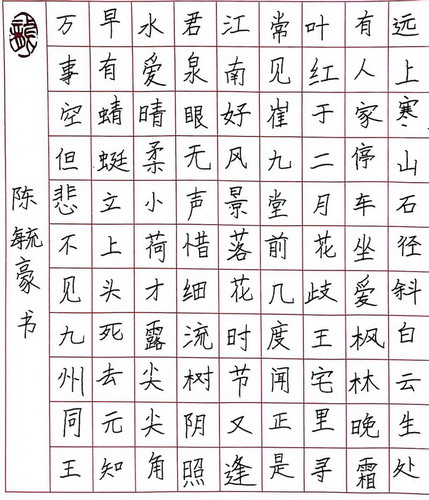 远上寒山石径斜白云生处
有人家停车坐爱枫林晚霜
叶红于二月花歧王宅里寻
常见崔九堂前几度闻正是
江南好风景落花时节又逢
君泉眼无声惜细流树阴照
水爱晴柔小荷才露尖尖角
早有蜻蜓立上头死去元知
万事空但悲不见九州同王
陈毓豪书